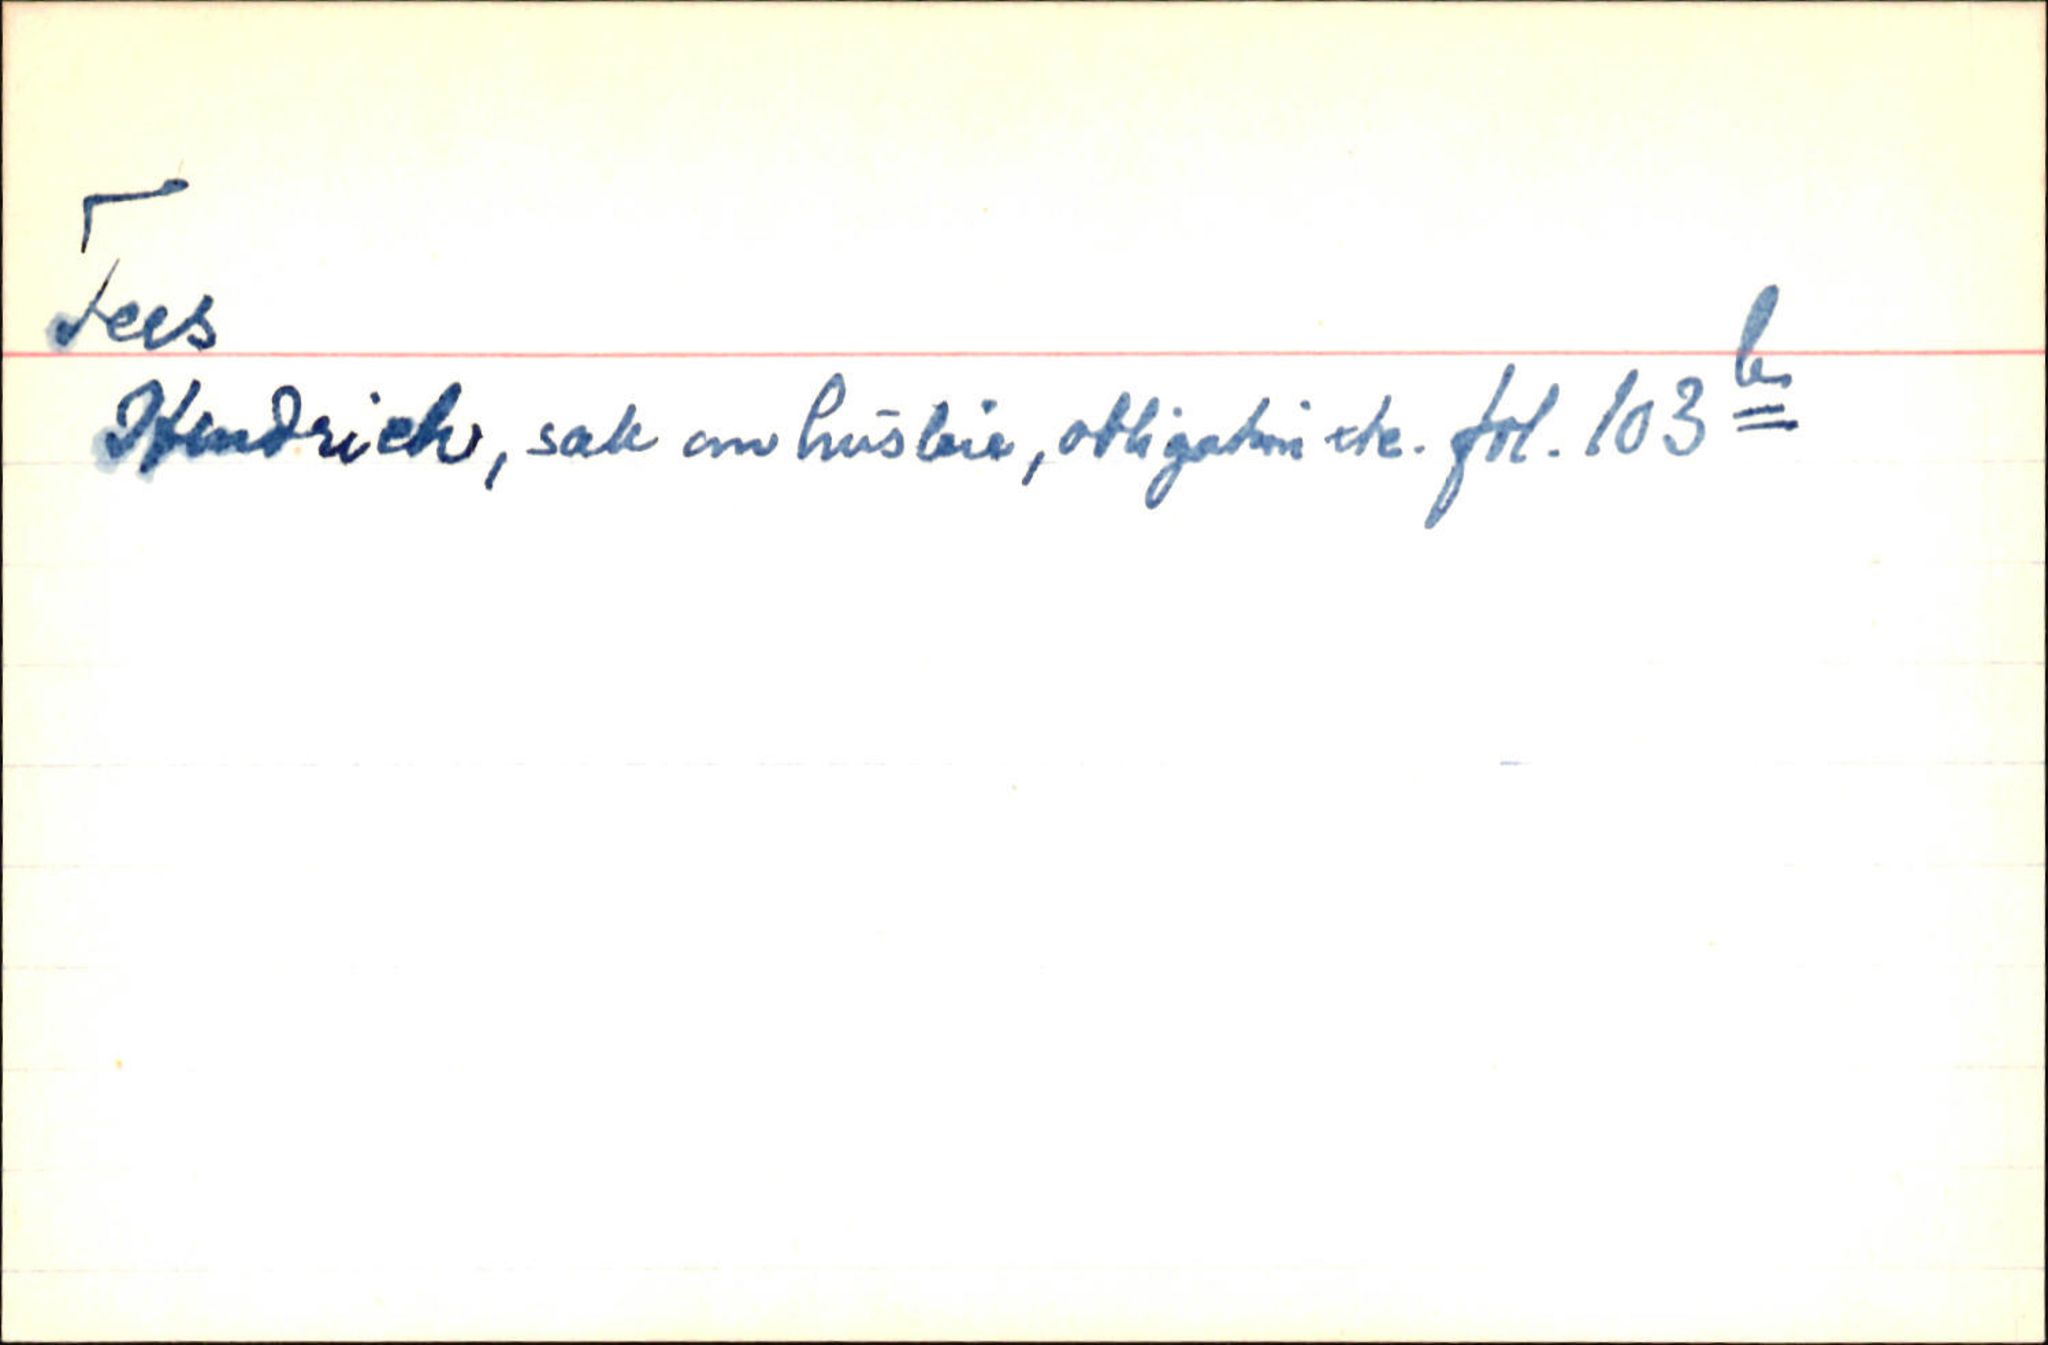 Tees
Hendrich, sak om husleie, obligation etc. fol. 103 b